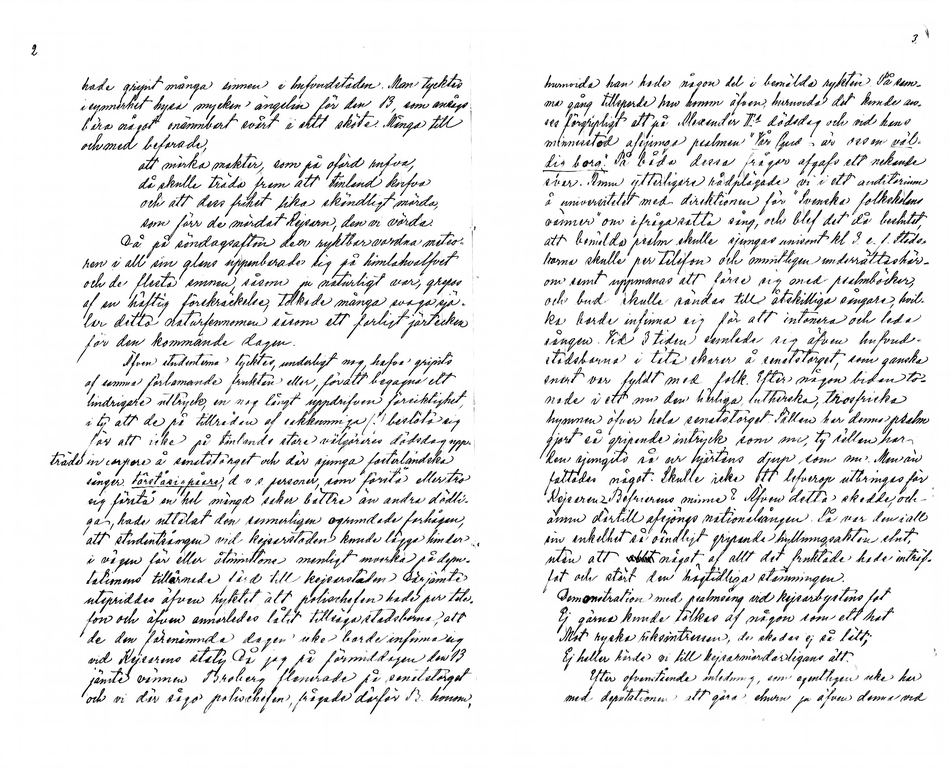 2
hade gripit många sinnen i hufvudstaden. Man tycktes
i synnerhet hysa mycken ängslan för den 13, som ansågs
bära något enämbart svårt i sitt sköte. Många till
och med befarade,
att mörka makter, som på ofärd rufva,
då skulle träda fram att Finland kufva
och att dess frihet lika skändligt mörda,
som förr de mördat Kejsarn, den vi vörda.
Då på söndagsafton den ryktbar vordna meteo-
ren i all sin glans uppenbarade sig på himlahvalfvet
och de flesta sinnen, såsom ju naturligt var, grepos
af en häftig förskräckelse, tolkade många svaga sjä-
lar detta naturfenomen såsom ett farligt järtecken
för den kommande dagen.
Äfven studenterna tycktes, underligt nog, hafva gripits
af samma förlamande fruktan eller, för att begagna ett
lindrigare uttryck, en nog långt uppdrifven försiktighet,
i ty att de på tillrådan af sakkunniga (!) beslöto sig
för att icke på Finlands store välgörares dödsdag upp-
träda in corpore å senatstorget och där sjunga fosterländska
sånger. Förståsigpåare, d v s personer, som förstå eller tro
sig förstå en hel mängd saker bättre än andra dödli-
ga, hade uttalat den sannerligen ogrundade farhågan,
att studentsången vid kejsarstoden kunde lägga hinder
i vägen för eller åtminstone menligt inverka på depu-
tationens tillärnade färd till kejsarstaden Därjämte
utspriddes äfven ryktet att polischefen hade per tele-
fon och äfven annorledes låtit tillsäga stadsborna, att
de den förenämnda dagen icke borde infinna sig
vid Kejsarens staty Då jag på förmiddagen den 13
jämte vännen Broberg flanerade på senatstorget
och vi där sågo polischefen, frågade därför B. honom,
3.
huruvida han hade någon del i bemälda rykten På sam-
ma gång tillsporde han honom äfven, huruvida det kunde an-
ses förgripligt att på Alexander II:s dödsdag och vid hans
minnesstod afsjunga psalmen "Vår Gud är oss en väl-
dig borg". På båda dessa frågor afgafs ett nekande
svar. Ännu ytterligare rådplägade vi i ett auditorium
å universitetet med direktionen för "Svenska folkskolans
vänner" om ifrågasatta sång, och blef det då beslutet,
att bemälda psalm skulle sjungas unisont kl 3 e. l. Stads-
borna skulle per telefon och muntligen underrättas här-
om samt uppmanas att förse sig med psalmböcker,
och bud skulle sändas till åtskilliga sångare, hvil-
ka borde infinna sig för att intonera och leda
sången. Vid 3 tiden samlade sig äfven hufvud-
stadsborna i täta skaror å senatstorget, som ganska
snart var fyldt med folk. Efter någon bidan to-
nade i ett nu den härliga lutherska, trosfriska
hymnen öfver hela senatstorget. Sällan har denna psalm
gjort så gripande intryck som nu, ty sällan har
den sjungits så ur hjärtans djup som nu. Men än
fattades något. Skulle icke ett lefverop utbringas för
Kejsaren-Befriarens minne? Äfven detta skedde, och
ännu därtill afsjöngs nationalsången. Så var den i all
sin enkelhet så oändligt gripande hyllningsakten slut,
utan att något af allt det fruktade hade inträf-
fat och stört den högtidliga stämningen.
Demonstration med psalmsång vid kejsarbystens fot
Ej gärna kunde tolkas af någon som ett hot
Mot ryska riksintressen, de skadas ej så lätt;
Ej heller hörde vi till kejsarmördarligans ätt.
Efter ofvanstående inledning, som egentligen icke har
med deputationen att göra ehuru ju äfven denna vid